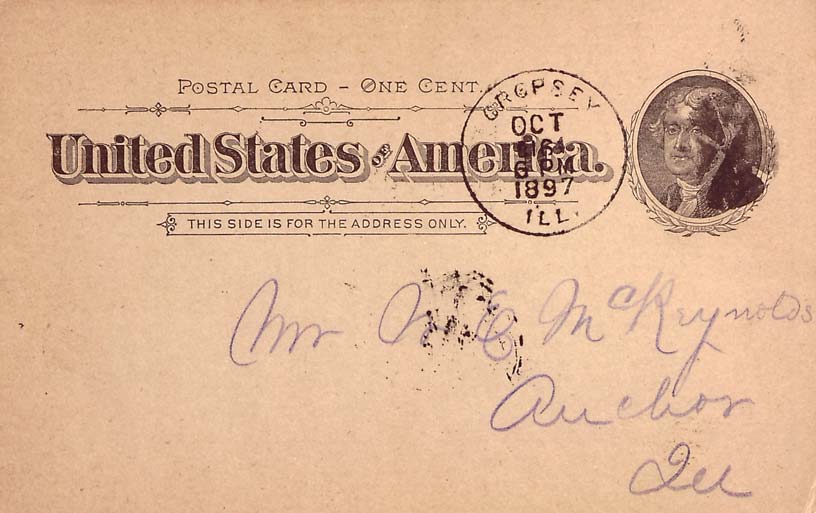 POSTAL CARD – ONE CENT.
United States OF America.
THIS SIDE IS FOR THE ADDRESS ONLY.
CROPSEY
OCT
6 PM
1897
ILL.
Mr E McReynolds
Anchor
Ill